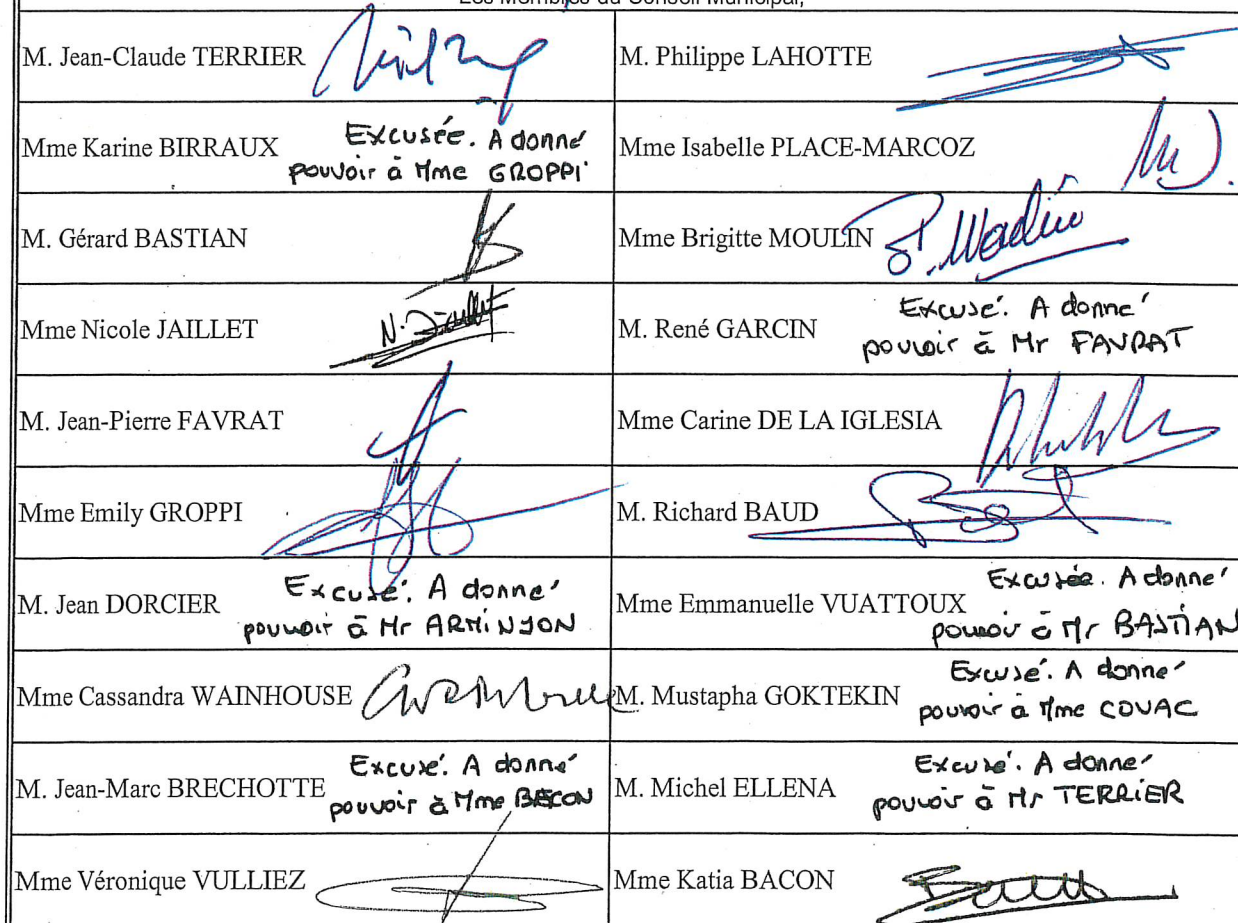 Les Membres du Conseil Municipal,
M. Jean-Claude TERRIER
M. Philippe LAHOTTE
Mme Karine BIRRAUX
Excusée. A donné
pouvoir à Mme GROPPI
Mme Isabelle PLACE-MARCOZ
M. Gérard BASTIAN
Mme Brigitte MOULIN
Mme Nicole JAILLET
N. Jaillet
M. René GARCIN
Excusé. A donné
pouvoir à Mr FAVRAT
M. Jean-Pierre FAVRAT
Mme Carine DE LA IGLESIA
Mme Emily GROPPI
M. Richard BAUD
M. Jean DORCIER
Excusé. A donné
pouvoir à Mr ARMINJON
Mme Emmanuelle VUATTOUX
Excusée. A donné
pouvoir à Mr BASTIAN
Mme Cassandra WAINHOUSE
M. Mustapha GOKTEKIN
Excusé. A donné
pouvoir à Mme COVAC
M. Jean-Marc BRECHOTTE
Excusé. A donné
pouvoir à Mme BACON
M. Michel ELLENA
Excusé. A donné
pouvoir à Mr TERRIER
Mme Véronique VULLIEZ
Mme Katia BACON